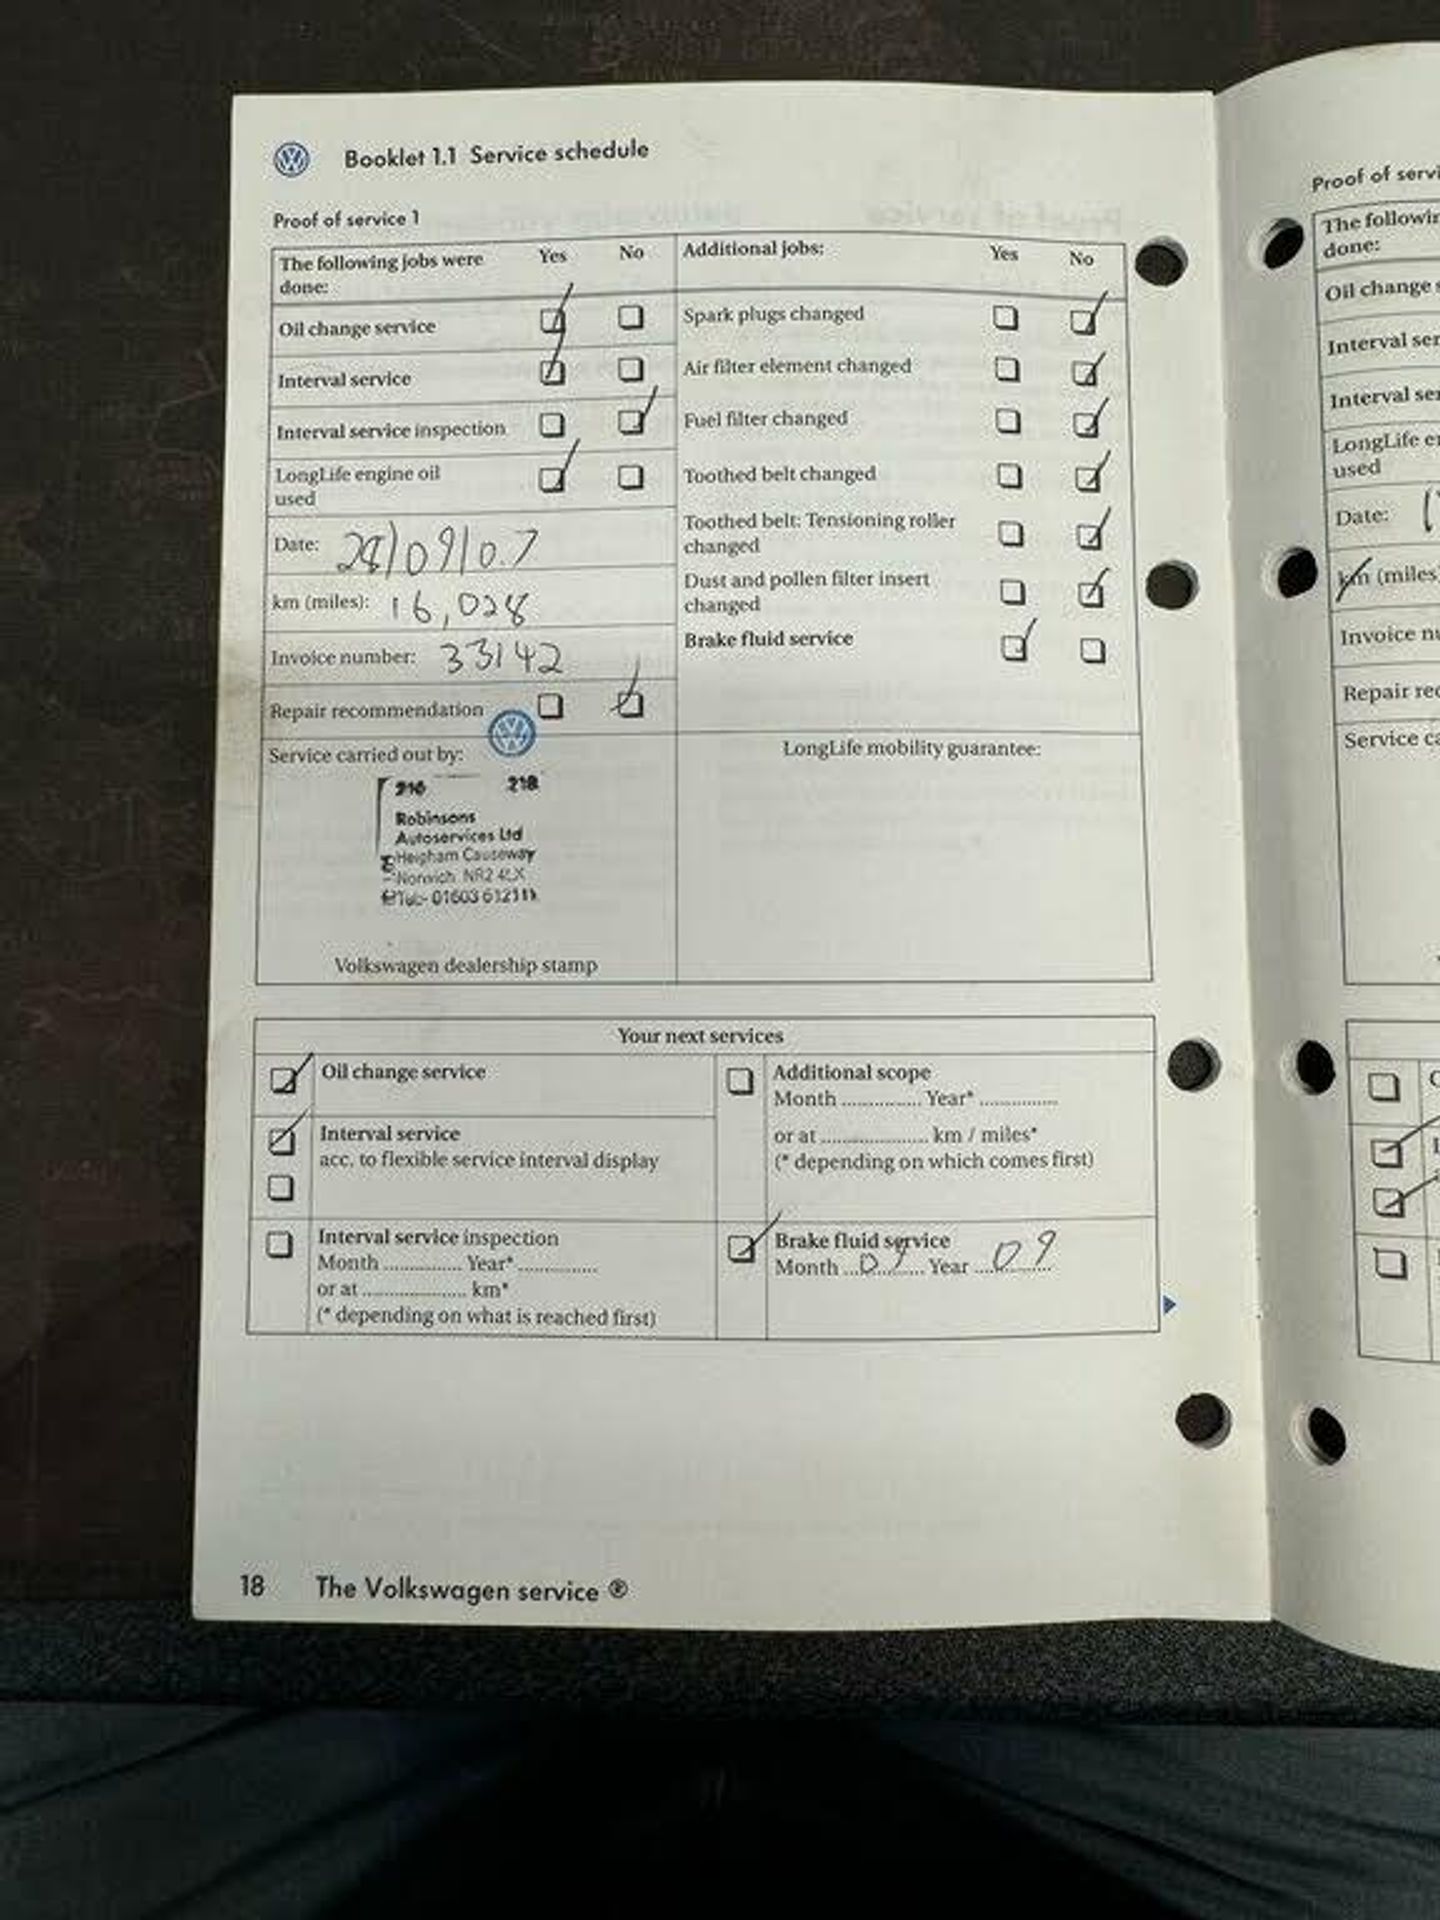 Booklet 1.1 Service schedule
Proof of service 1
The following jobs were done:
Yes No
Oil change service
Interval service
Interval service inspection
LongLife engine oil used
Date: 28/09/07
km (miles): 16,028
Invoice number: 33142
Repair recommendation
Service carried out by:
216 218
Robinsons
Autoservices Ltd
Heigham Causeway
Norwich NR2 4LX
Tel:- 01603 612111
Volkswagen dealership stamp
Additional jobs:
Yes No
Spark plugs changed
Air filter element changed
Fuel filter changed
Toothed belt changed
Toothed belt: Tensioning roller changed
Dust and pollen filter insert changed
Brake fluid service
LongLife mobility guarantee:
Your next services
Oil change service
Interval service
acc. to flexible service interval display
Interval service inspection
Month .............. Year* ..............
or at ................... km*
(* depending on what is reached first)
Additional scope
Month .............. Year* ..............
or at .................... km / miles*
(* depending on which comes first)
Brake fluid service
Month 09 Year 09
18 The Volkswagen service ®
Proof of servi
The followin
done:
Oil change s
Interval ser
Interval ser
LongLife en
used
Date:
km (miles)
Invoice nu
Repair rec
Service ca